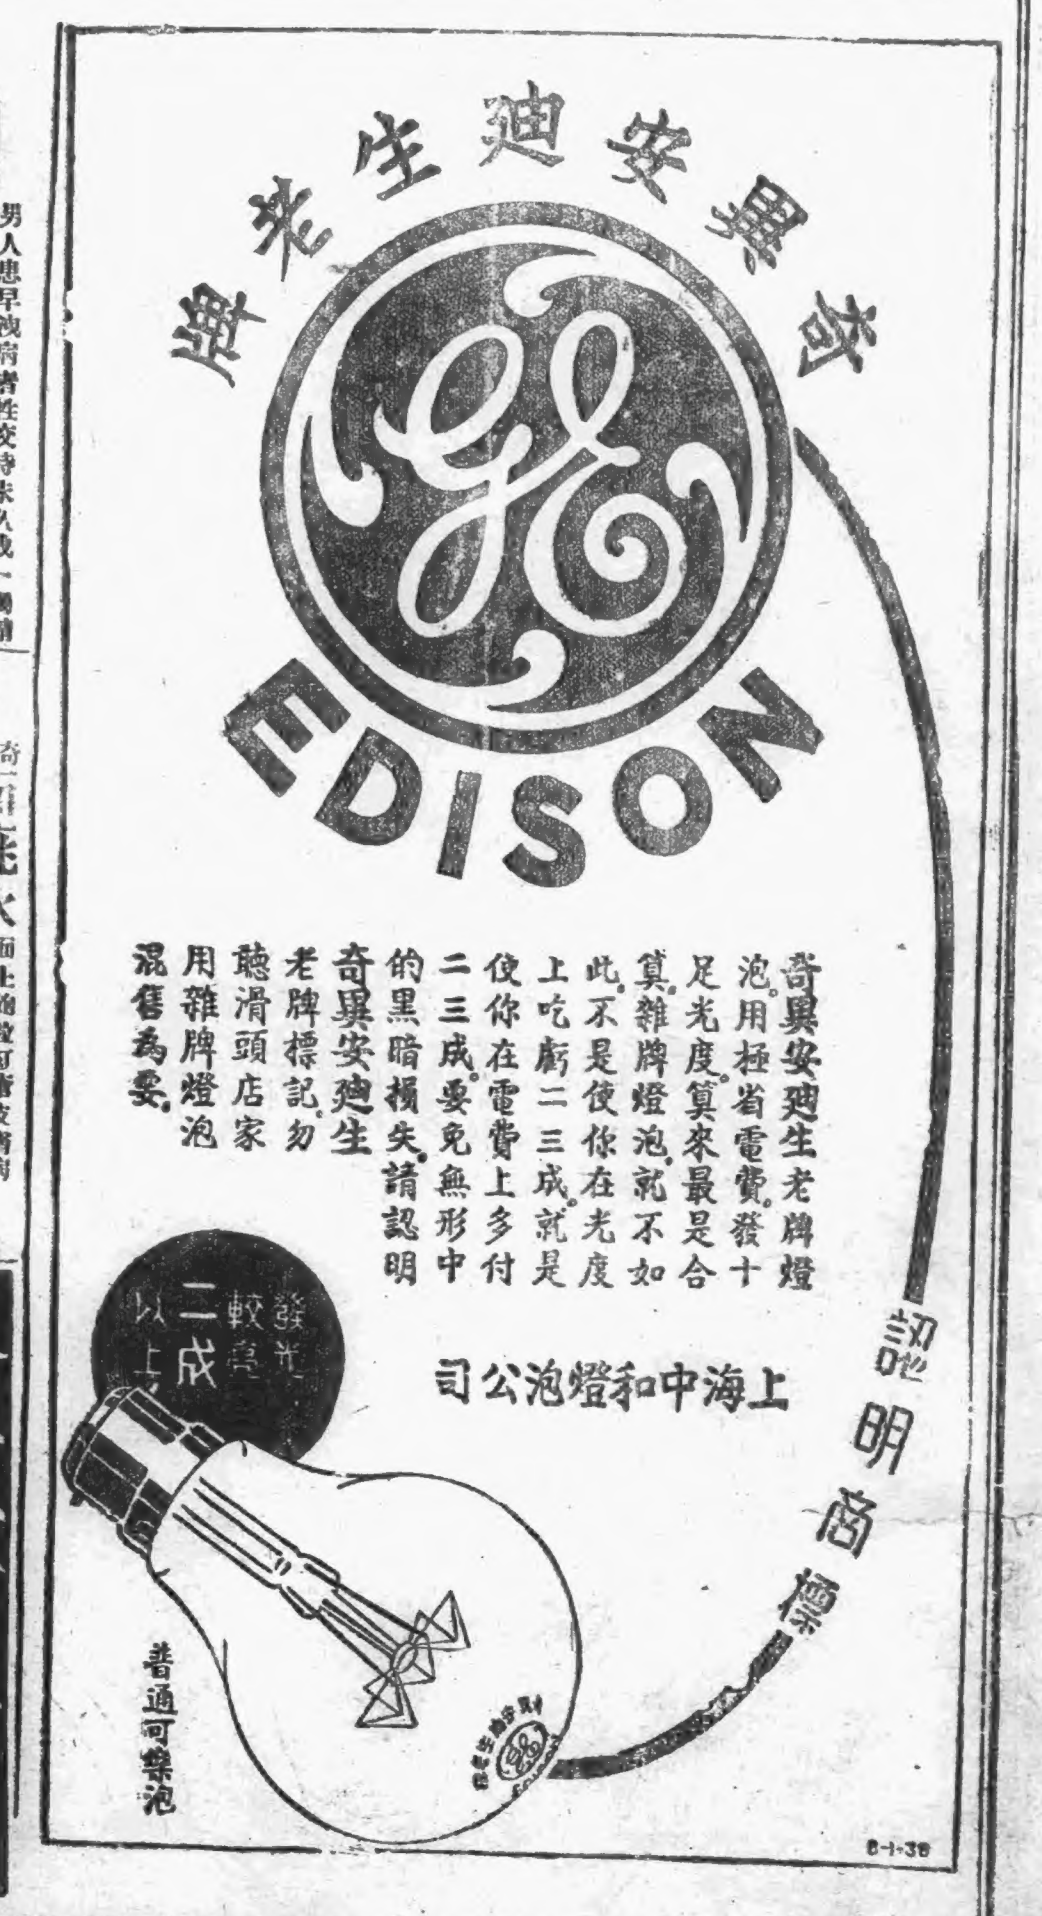 奇異安迪生老牌
GE
EDISON
奇異安廸生老牌燈
泡。用極省電費。發十
足光度。算來最是合
算。雜牌燈泡。就不如
此。不是使你在光度
上吃虧二三成。就是
使你在電費上多付
二三成。要免無形中
的黑暗損失。請認明
奇異安廸生
老牌標記。勿
聽滑頭店家
用雜牌燈泡
混售為要。
上海中和燈泡公司
認明商標
發光
較亮
二成
以上
普通可樂泡